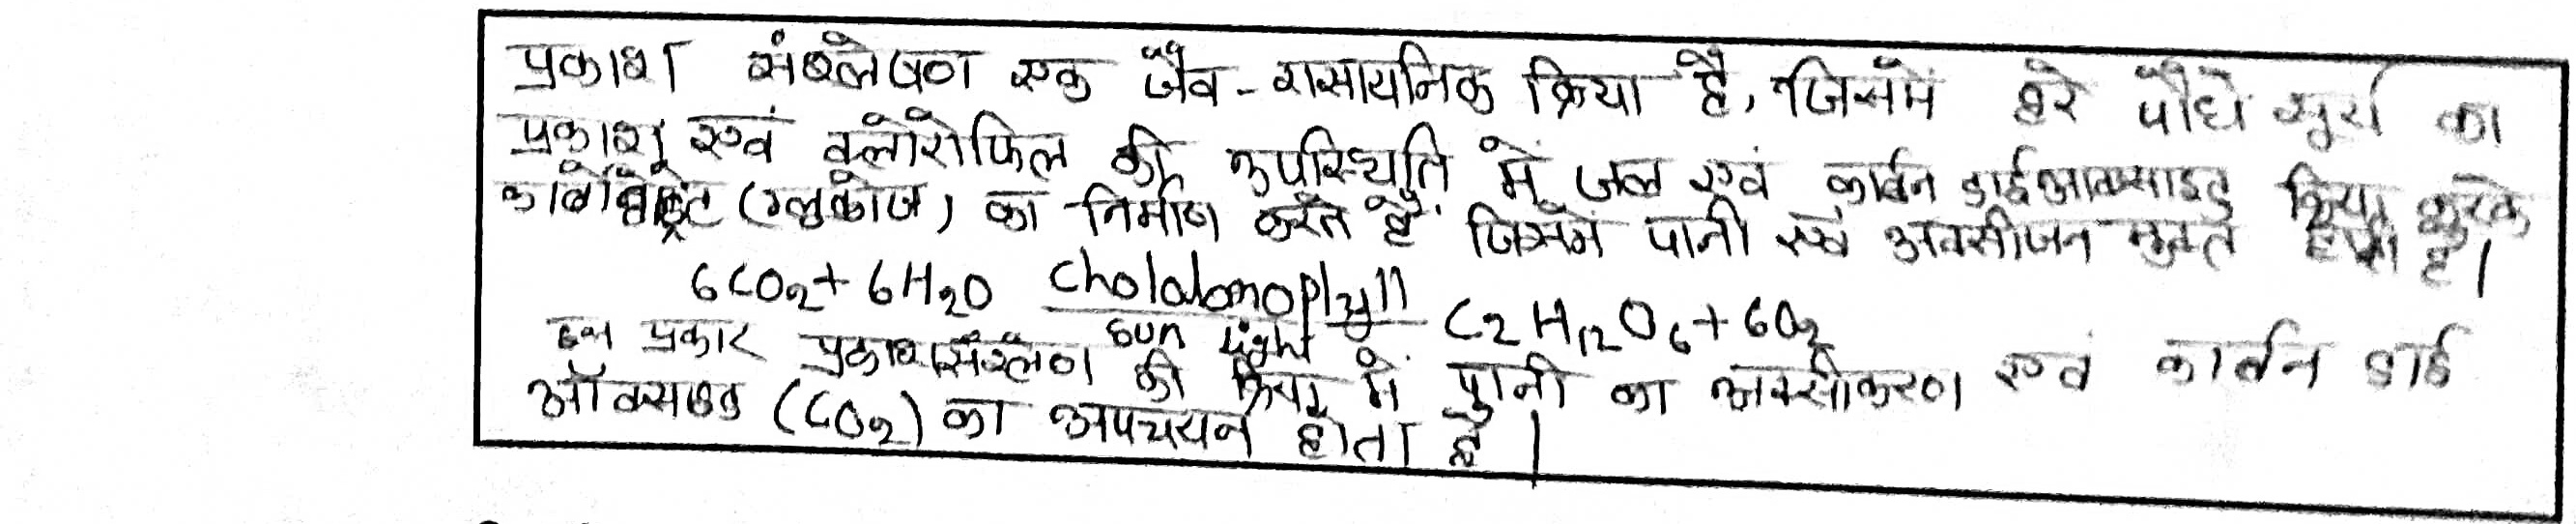 प्रकाश संश्लेषण एक जैव-रासायनिक क्रिया है, जिसमें हरे पौधे सूर्य का
प्रकाश एवं क्लोरोफिल की उपस्थिति में जल एवं कार्बन डाईआक्साइड क्रिया करके
(ग्लुकोज) का निर्माण करते है, जिसमें पानी एवं आक्सीजन मुक्त होता है।
6CO2 + 6H2O Cholalomophyll C2H12O6 + 6O2
Sun light
इस प्रकार प्रकाशसंश्लेण की क्रिया में पानी का आक्सीकरण एवं कार्बन डाई
ऑक्साइड (CO2) का अपचयन होता है।